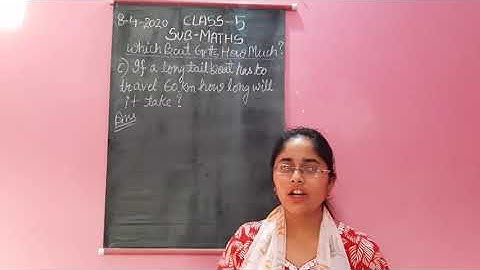 8-4-2020 CLASS-5
SUB-MATHS
Which Boat Gets How Much?
c) If a long tail boat has to
travel 60 km how long will
it take?
Ans